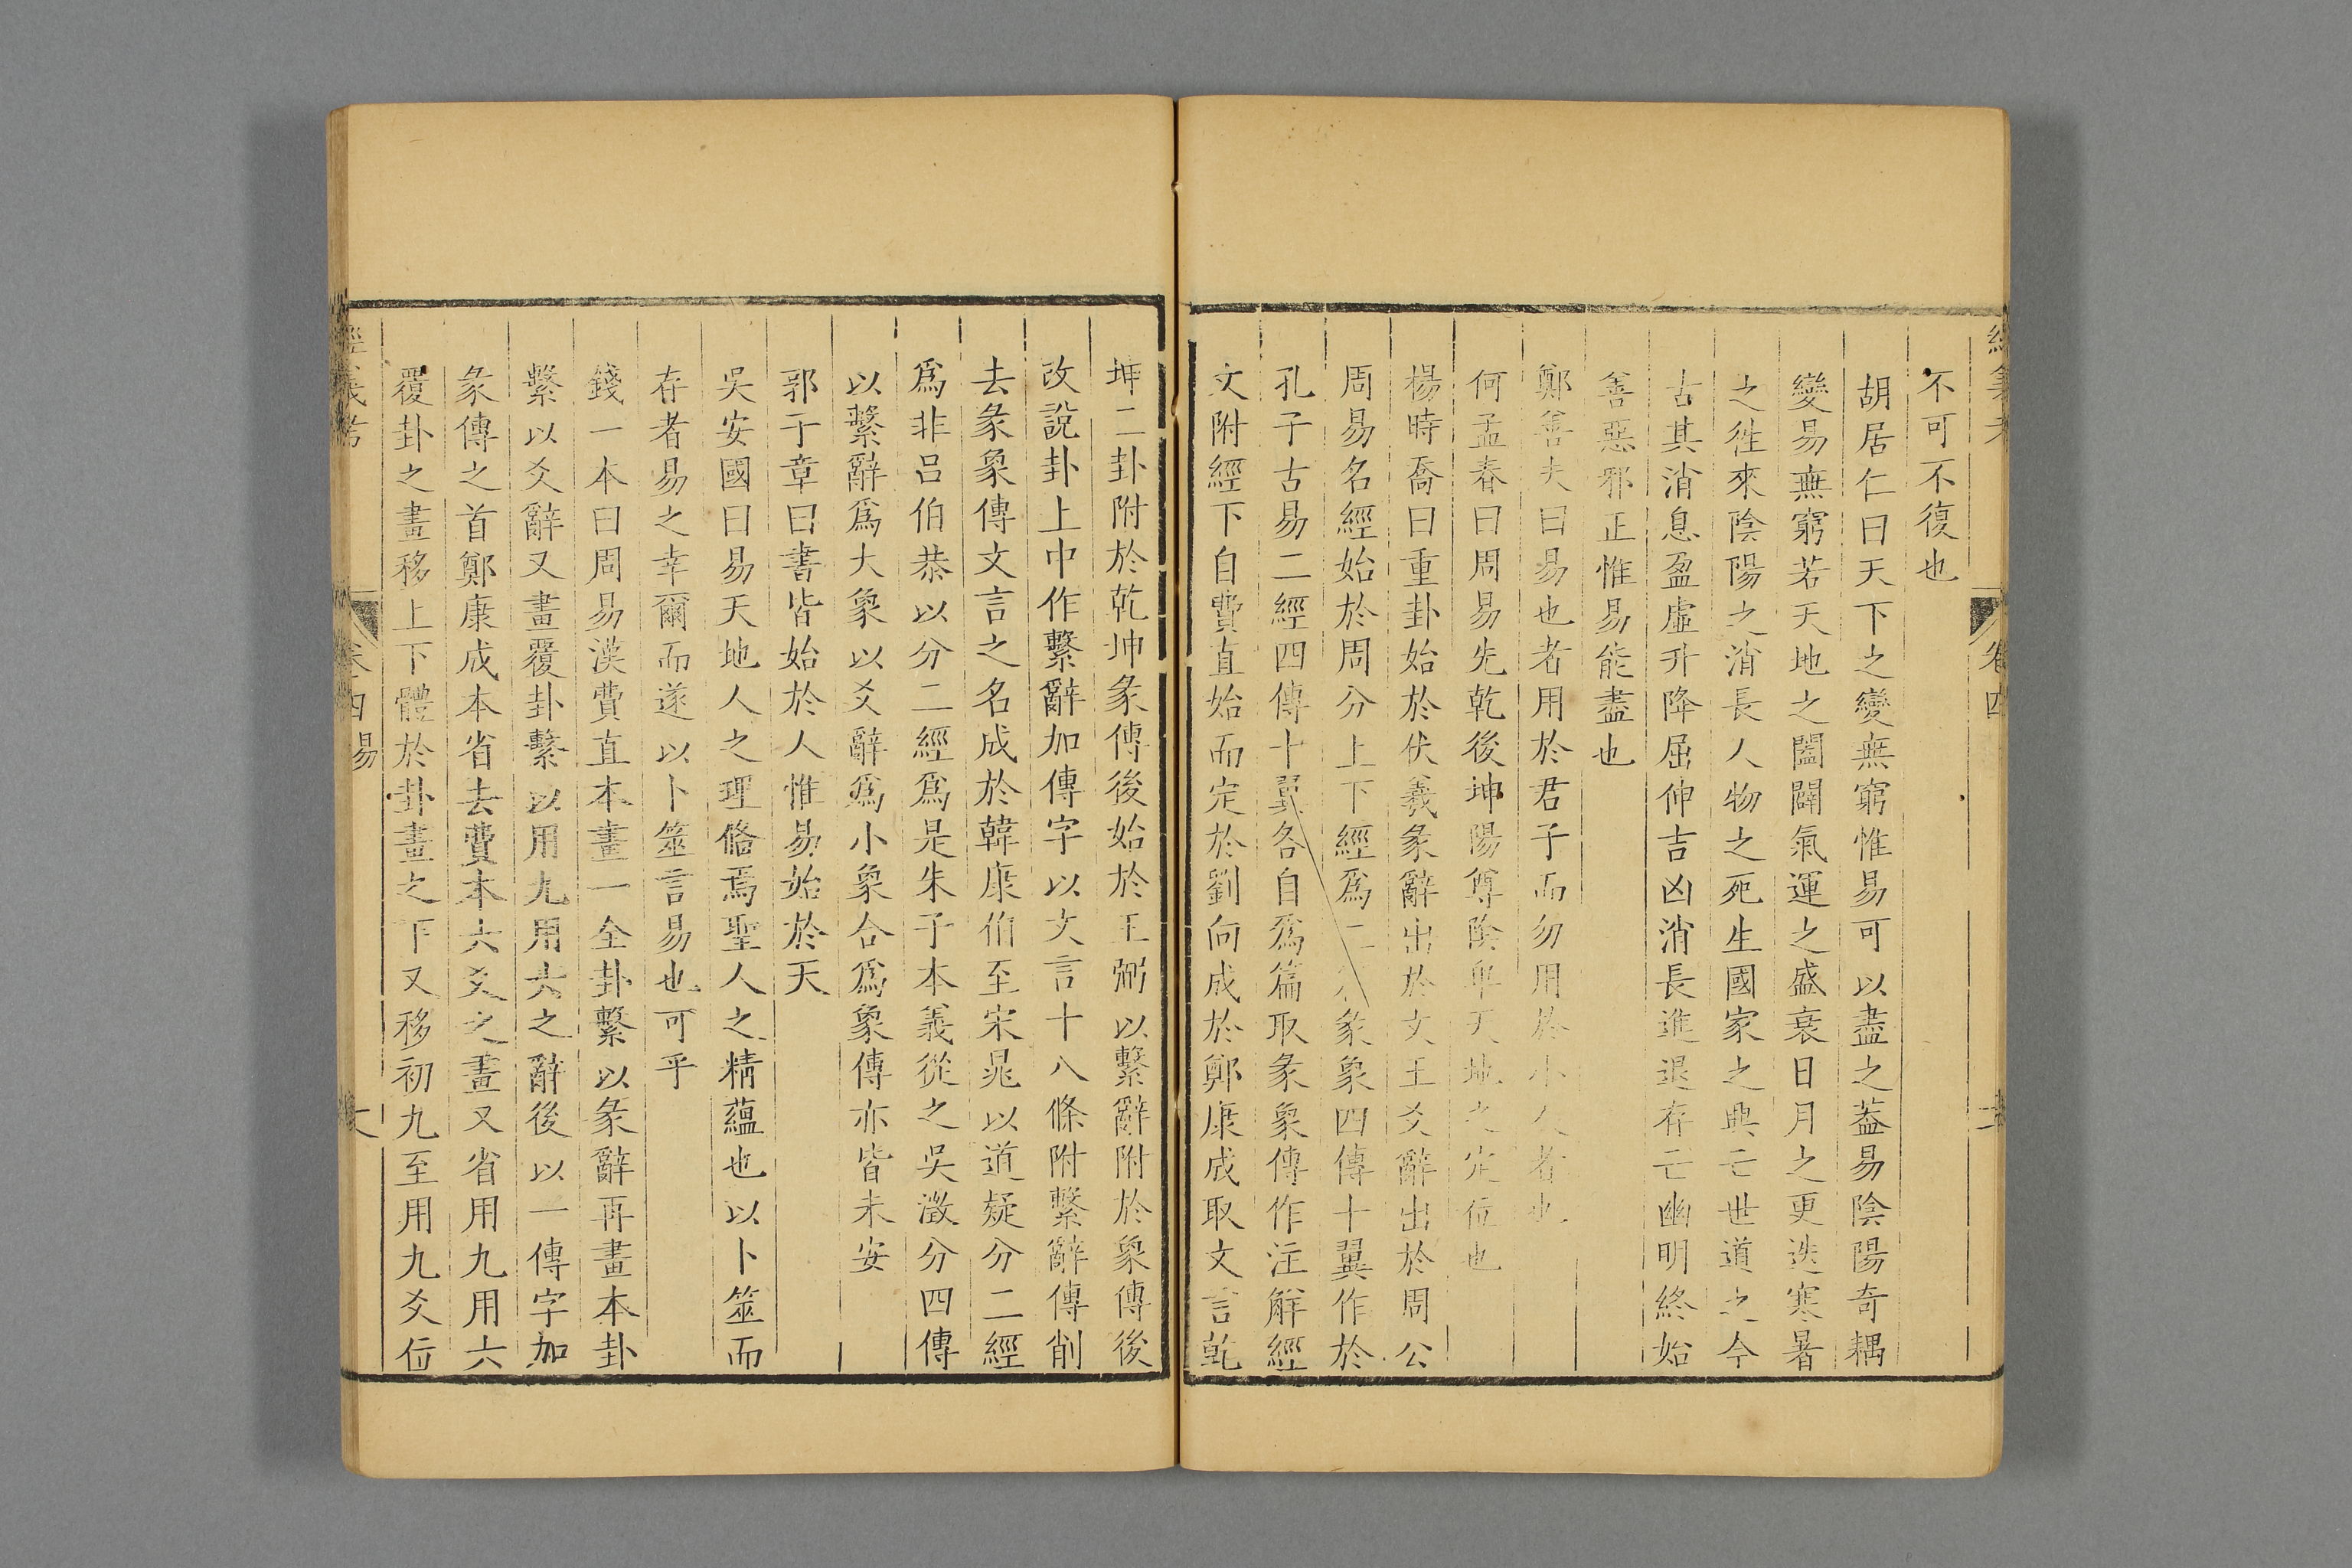 不可不復也
胡居仁曰天下之變無窮惟易可以盡之葢易陰陽奇耦
變易無窮若天地之闔闢氣運之盛衰日月之更迭寒暑
之徃來陰陽之消長人物之死生國家之興亡世道之今
古其消息盈虛升降屈伸吉凶消長進退存亡幽明終始
善惡邪正惟易能盡也
鄭善夫曰易也者用於君子而勿用於小人者也
何孟春曰周易先乾後坤陽尊陰卑天地之定位也
楊時喬曰重卦始於伏羲彖辭出於文王爻辭出於周公
周易名經始於周分上下經爲二彖象四傳十翼作於
孔子古易二經四傳十翼各自爲篇取彖象傳作注解經
文附經下自費直始而定於劉向成於鄭康成取文言乾
坤二卦附於乾坤彖傳後始於王弼以繫辭附於象傳後
改說卦上中作繫辭加傳字以文言十八條附繫辭傳削
去彖象傳文言之名成於韓康伯至宋晁以道疑分二經
爲非呂伯恭以分二經爲是朱子本義從之吳澂分四傳
以繫辭爲大象以爻辭爲小象合爲象傳亦皆未安
郭子章曰書皆始於人惟易始於天
吳安國曰易天地人之理備焉聖人之精蘊也以卜筮而
存者易之幸爾而遂以卜筮言易也可乎
錢一本曰周易漢費直本畫一全卦繫以彖辭再畫本卦
繫以爻辭又畫覆卦繫以用九用六之辭後以一傳字加
彖傳之首鄭康成本省去費本六爻之畫又省用九用六
覆卦之畫移上下體於卦畫之下又移初九至用九爻位
經義考
卷四易